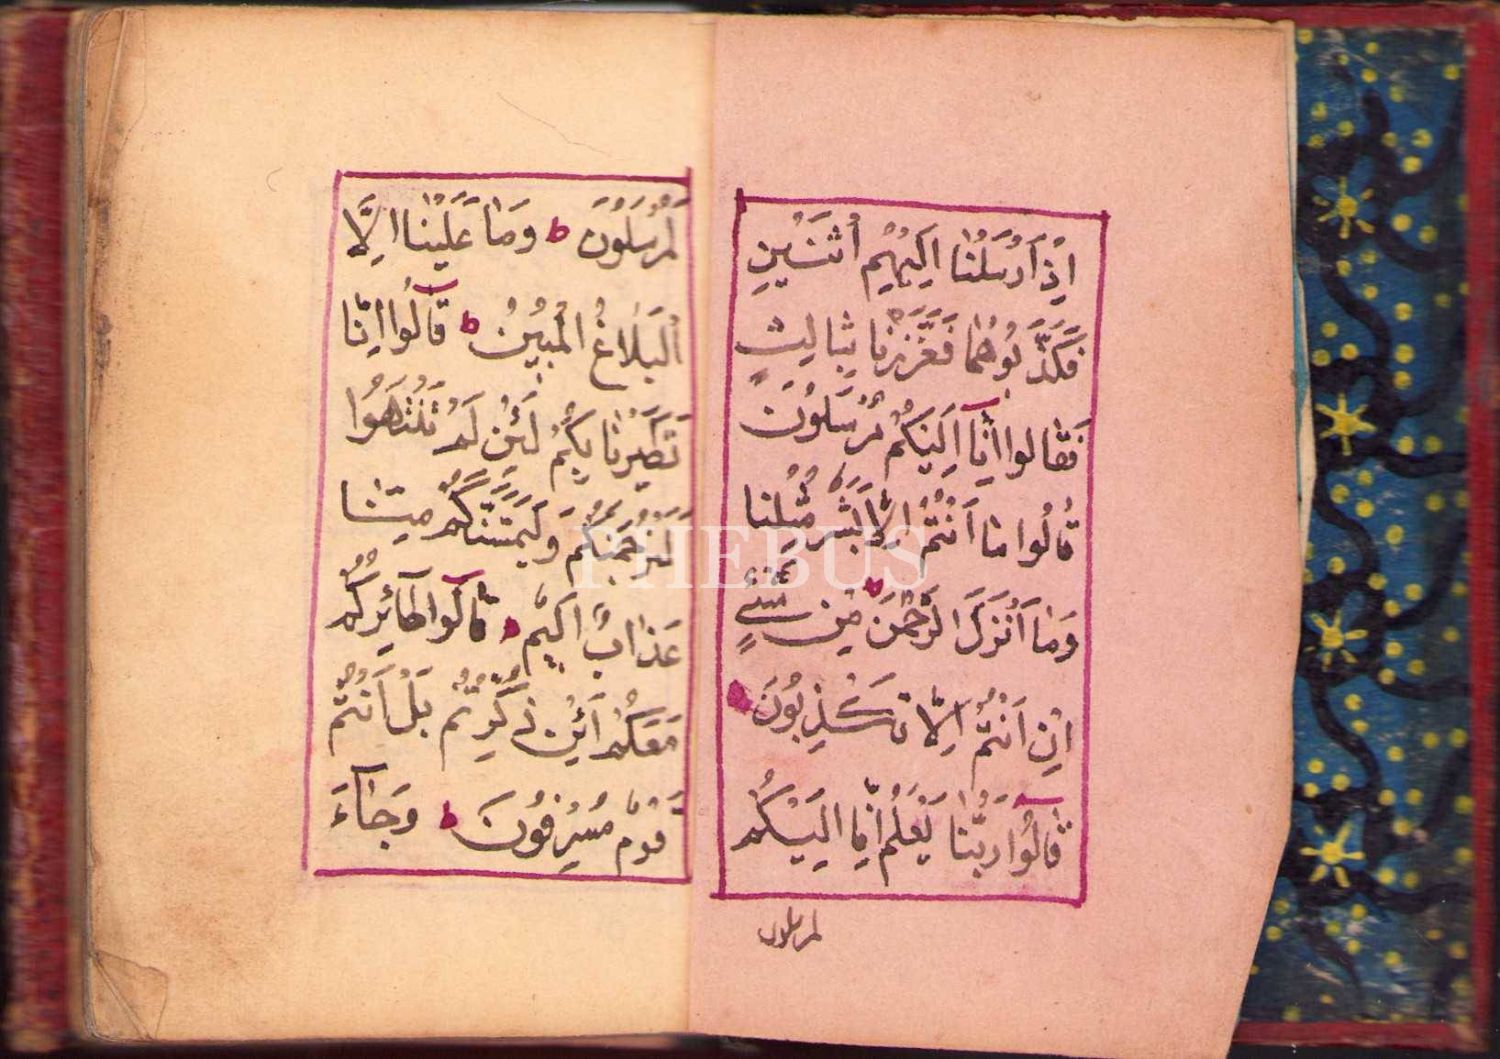 اِذْ اَرْسَلْنَا اِلَيْهِمُ اثْنَيْنِ
فَكَذَّبُوهُمَا فَعَزَّزْنَا بِثَالِثٍ
فَقَالُوا اِنَّآ اِلَيْكُمْ مُرْسَلُونَ
قَالُوا مَا اَنْتُمْ اِلَّا بَشَرٌ مِّثْلُنَا
وَمَا اَنْزَلَ الرَّحْمٰنُ مِنْ شَيْءٍ
اِنْ اَنْتُمْ اِلَّا تَكْذِبُونَ
قَالُوا رَبُّنَا يَعْلَمُ اِنَّا اِلَيْكُمْ
لمرسلون
لَمُرْسَلُونَ ط وَمَا عَلَيْنَا اِلَّا
الْبَلَاغُ الْمُبِينُ ط قَالُوا اِنَّا
تَطَيَّرْنَا بِكُمْ لَئِنْ لَمْ تَنْتَهُوا
لَنَرْجُمَنَّكُمْ وَلَيَمَسَّنَّكُمْ مِنَّا
عَذَابٌ اَلِيمٌ ط قَالُوا طَآئِرُكُمْ
مَعَكُمْ اَئِنْ ذُكِّرْتُمْ بَلْ اَنْتُمْ
قَوْمٌ مُسْرِفُونَ ط وَجَآءَ
PHEBUS